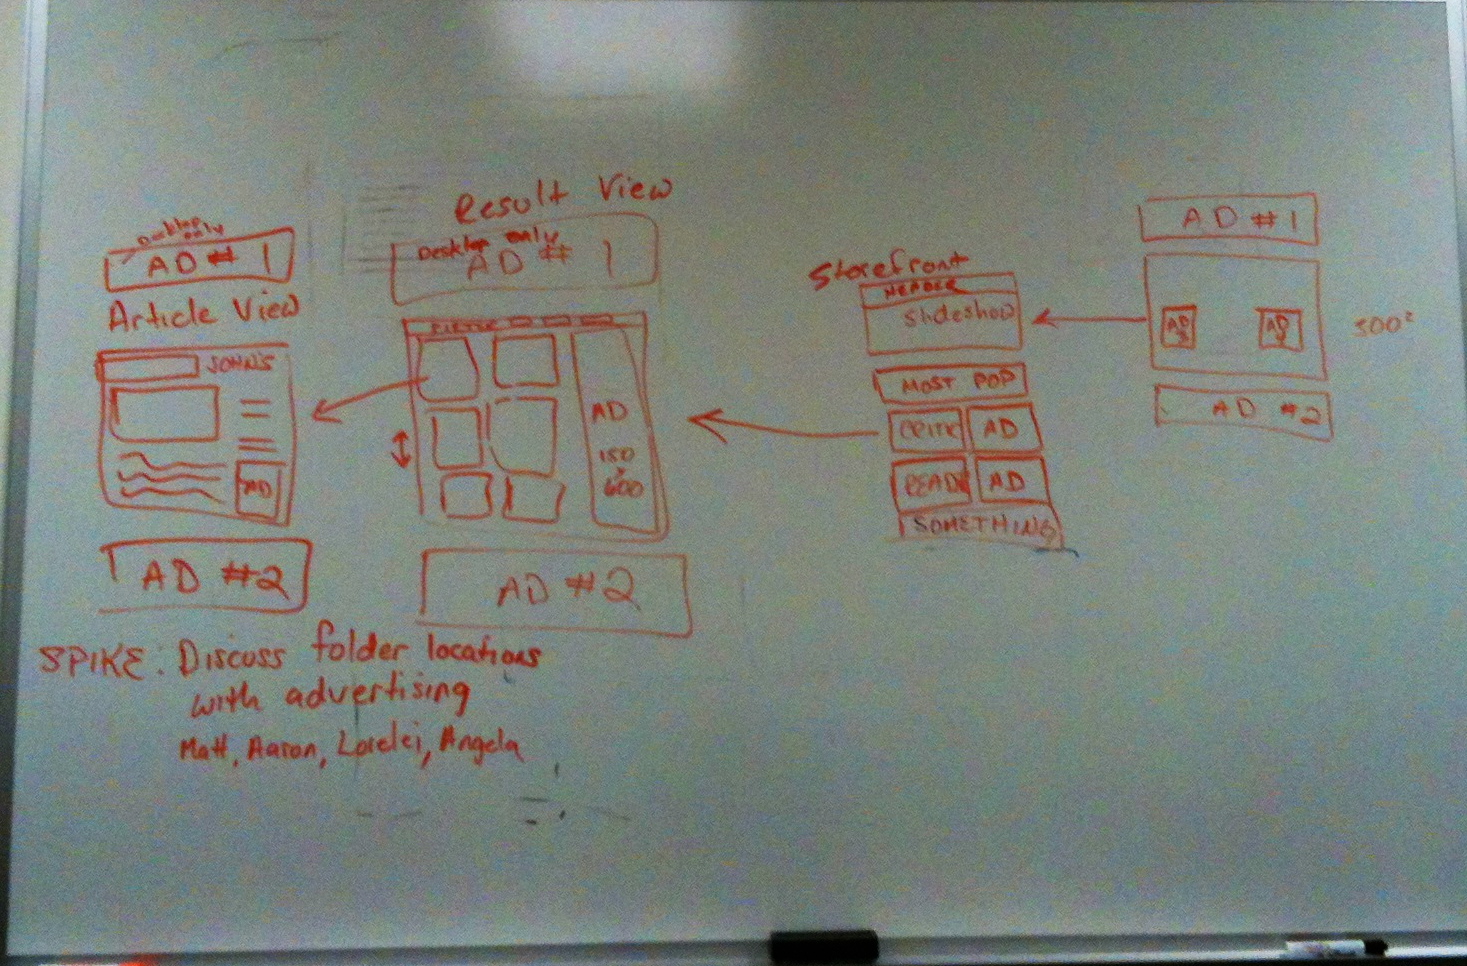 Desktop only
AD # 1
Article View
JOHN'S
AD
AD #2
Result View
Desktop only
AD # 1
AD
150
x
600
AD #2
Storefront
HEADER
Slideshow
MOST POP
CRITIC
AD
READ
AD
SOMETHING
AD #1
AD
AD
300²
AD #2
SPIKE: Discuss folder locations
with advertising
Matt, Aaron, Lorelei, Angela